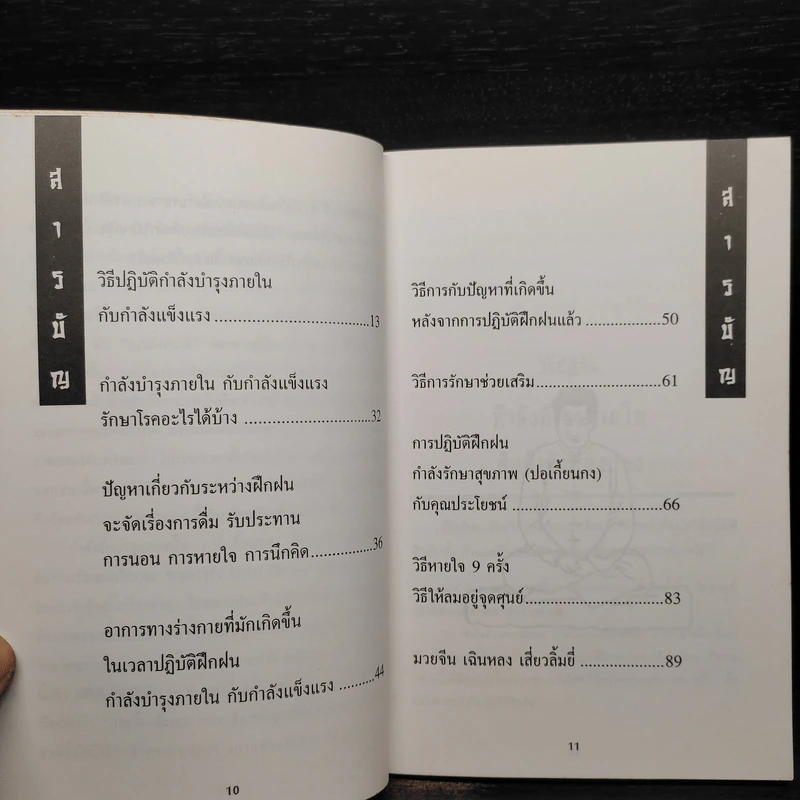 สารบัญ
วิธีปฏิบัติกำลังบำรุงภายใน
กับกำลังแข็งแรง ..................................13
กำลังบำรุงภายใน กับกำลังแข็งแรง
รักษาโรคอะไรได้บ้าง ...........................32
ปัญหาเกี่ยวกับระหว่างฝึกฝน
จะจัดเรื่องการดื่ม รับประทาน
การนอน การหายใจ การนึกคิด..............36
อาการทางร่างกายที่มักเกิดขึ้น
ในเวลาปฏิบัติฝึกฝน
กำลังบำรุงภายใน กับกำลังแข็งแรง .........44
10
สารบัญ
วิธีการกับปัญหาที่เกิดขึ้น
หลังจากการปฏิบัติฝึกฝนแล้ว .................50
วิธีการรักษาช่วยเสริม............................61
การปฏิบัติฝึกฝน
กำลังรักษาสุขภาพ (ปอเกี้ยนกง)
กับคุณประโยชน์ .................................66
วิธีหายใจ 9 ครั้ง
วิธีให้ลมอยู่จุดศูนย์...............................83
มวยจีน เฉินหลง เสี่ยวลิ้มยี่ ...................89
11